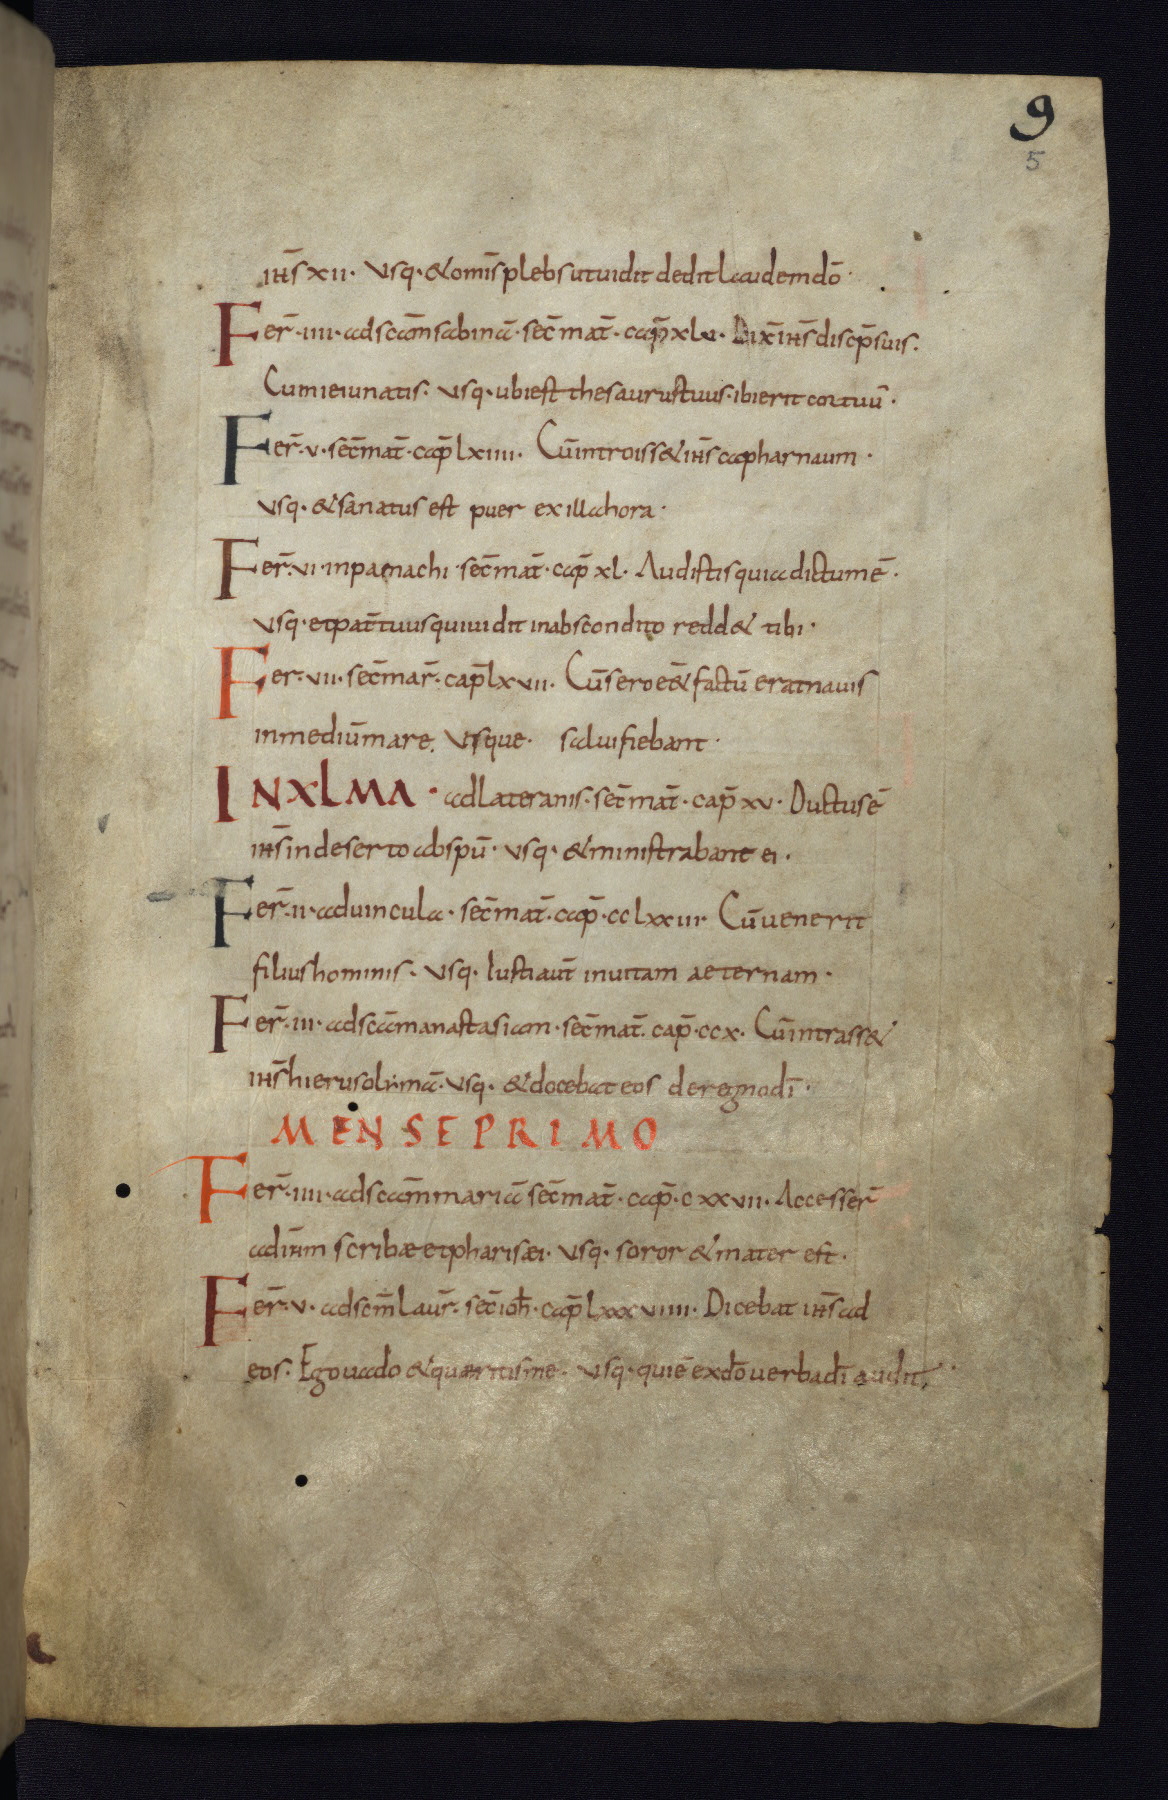 9
5
ihs̄ xii · usq · & omis̄ plebs ut uidit dedit laudem dō ·
Fer̄ · iiii · ad scam̄ sabinā · sec̄ mat̄ · cap̄ xlv · Dix̄ ihs̄ discip̄ suis ·
Cum ieiunatis · usq · ubi est thesaurus tuus · ibi erit cor tuū ·
Fer̄ · v · sec̄ mat̄ · cap̄ lxiiii · Cū introiss& ihs̄ capharnaum ·
usq · & sanatus est puer ex illa hora ·
Fer̄ · vi · in pamachi · sec̄ mat̄ · cap̄ xl · Audistis quia dictum ē ·
usq · et pat̄ tuus qui uidit in abscondito redd& tibi ·
Fer · vii · sec̄ mar̄ · cap̄ lxvii · Cū sero ē& factū erat nauis
in mediū mare · usque · salui fiebant ·
IN XLMA · ad lateranis · sec̄ mat̄ · cap̄ xv · Ductus ē
ihs̄ in deserto ab spū · usq · & ministrabant ei ·
Fer̄ · ii · ad uincula · sec̄ mat̄ · cap̄ · cclxxiii · Cū uenerit
filius hominis · usq · Iusti aut̄ in uitam aeternam ·
Fer̄ · iii · ad scām anastasiam · sec̄ mat̄ · cap̄ · ccx · Cū intrass&
ihs̄ hierusolimā · usq · & docebat eos de regno dī ·
MENSE PRIMO
Fer̄ · iiii · ad scam̄ mariā sec̄ mat̄ · cap̄ · cxxvii · Accesser̄
ad ihm̄ scribæ et pharisæi · usq · soror & mater est ·
Fer̄ · v · ad scm̄ laur̄ · sec̄ ioh̄ · cap̄ lxxxviiii · Dicebat ihs̄ ad
eos · Ego uado & quæritis me · usq · qui ē ex dō uerba dī audit ·